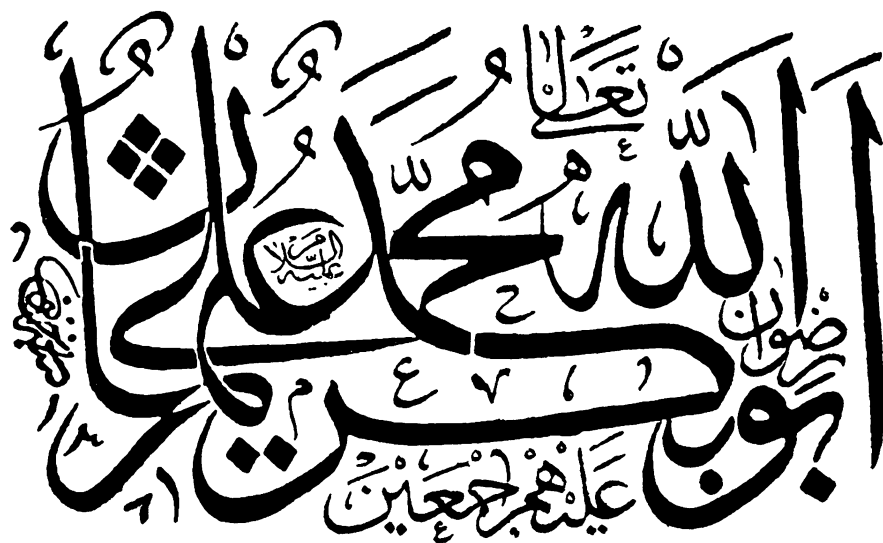 الله تعالى
محمد عليه السلام
ابوبكر عمر عثمان علي
رضوان الله عليهم اجمعين